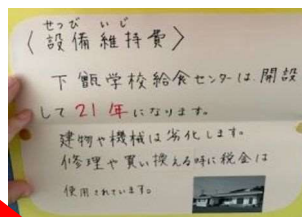 せつび いじ
〈設備維持費〉
下甑学校給食センターは、開設
して21年になります。
建物や機械は劣化します。
修理や買い換える時に税金は
使用されています。